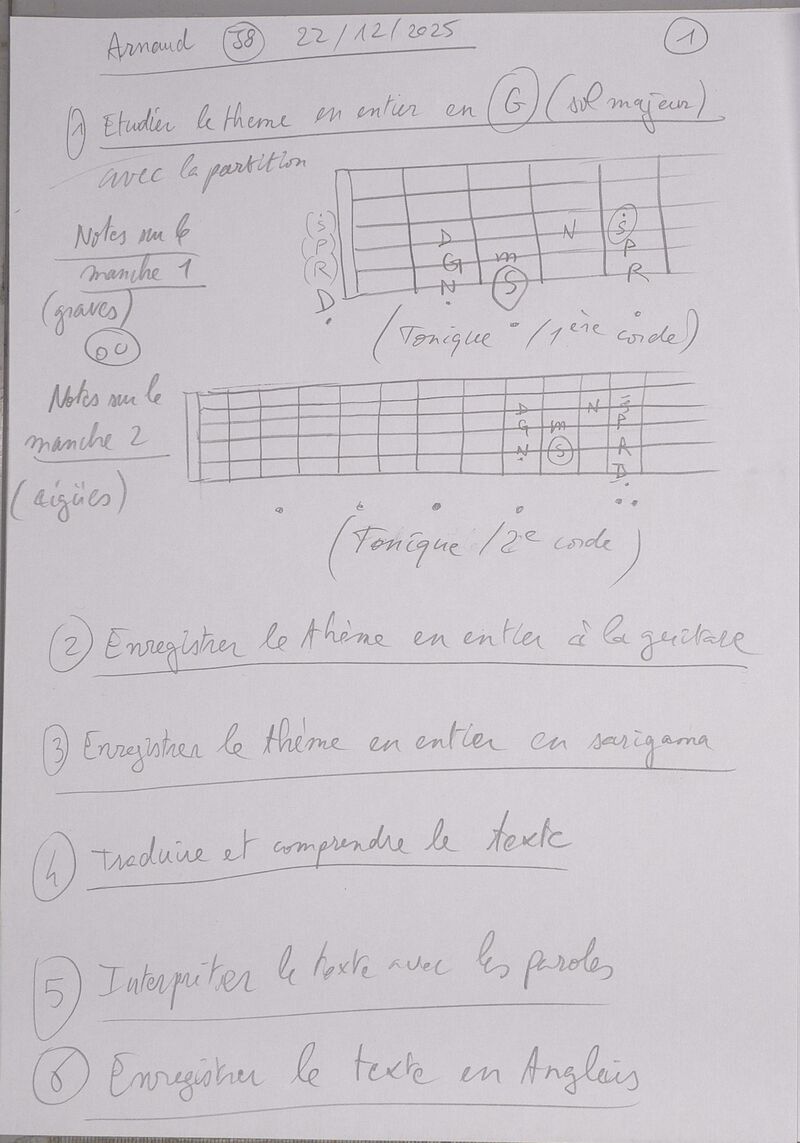 Arnaud J8 22/12/2025 1
1) Etudier le theme en entier en G (sol majeur)
avec la partition
Notes sur le
manche 1
(graves)
Ṡ
P
R
D
D N Ṡ
G m P
N S R
(Tonique / 1ère corde)
Notes sur le
manche 2
(aigües)
D N S
G m P
N S R
D
(Tonique / 2e corde)
2 Enregistrer le thème en entier à la guitare
3 Enregistrer le thème en entier en sarigama
4 traduire et comprendre le texte
5 Interpréter le texte avec les paroles
6 Enregistrer le texte en Anglais